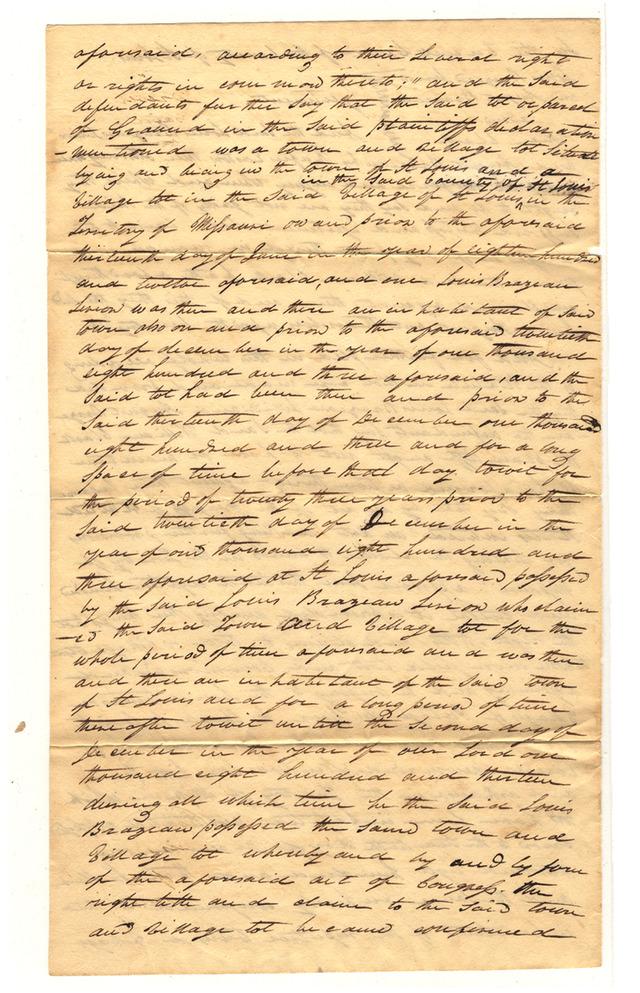 aforesaid, according to their several right
or rights in common thereto;" and the said
defendants further say that the said lot or parcel
of Ground in the said plaintiffs declaration
- mentioned was a town and Village lot situate
lying and being in the town of St Louis and a
in the said County of St Louis
Village lot in the said Village of St Louis ^ in the
Territory of Missouri on and prior to the aforesaid
thirteenth day of June in the year of eighteen hundred
and twelve aforesaid, and one Louis Brazeau
was then and there an inhabitant of said
town also on and prior to the aforesaid twentieth
day of december in the year of one thousand
eight hundred and three aforesaid, and the
said lot had been then and prior to the
said thirteenth day of December one thousand
eight hundred and three and for a long
space of time before that day towit for
the period of twenty three years prior to the
said twentieth day of December in the
year of one thousand eight hundred and
three aforesaid at St Louis aforesaid possessed
by the said Louis Brazeau who claim
- ed the said Town and Village lot for the
whole period of time aforesaid and was then
and there an inhabitant of the said town
of St Louis and for a long period of time
thereafter towit until the second day of
December in the year of our Lord one
thousand eight hundred and thirteen
during all which time he the said Louis
Brazeau possessed the same town and
Village lot whereby and by and by force
of the aforesaid act of Congress. the
right title and claim to the said town
and Village lot became confirmed